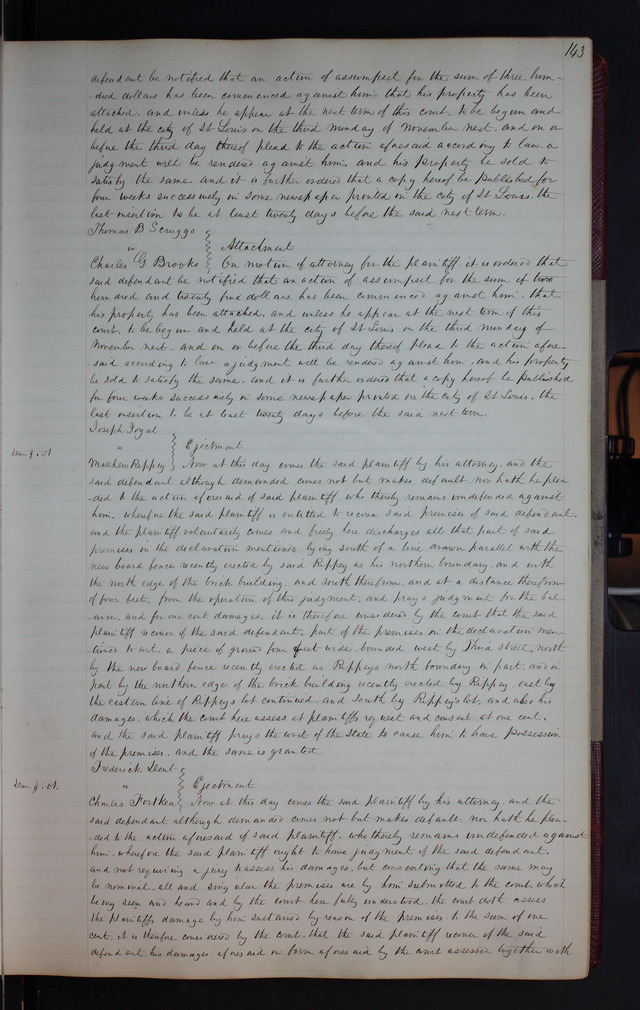 143
defendant be notified that an action of assumpsit for the sum of three hun-
-dred dollars has been commenced against him. that his property has been
attached. and unless he appear at the next term of this court, to be begun and
held at the city of St Louis on the third Monday of November next. and on or
before the third day thereof plead to the action aforesaid according to law. a
judgment will be rendered against him. and his property be sold to
satisfy the same. and it is further ordered that a copy hereof be published for
four weeks successively in some newspaper printed in the city of St Louis. the
last insertion to be at least twenty days before the said next term.
Thomas B Scruggs
" Attachment
Charles G Brooks On motion of attorney for the plaintiff. it is ordered that
said defendant be notified that an action of assumpsit for the sum of two
hundred and twenty five dollars. has been commenced against him. that
his property has been attached. and unless he appear at the next term of this
court. to be begun and held at the city of St Louis on the third Monday of
November next. and on or before the third day thereof plead to the action afore-
-said according to law a judgment will be rendered against him. and his property
be sold to satisfy the same. and it is further ordered that a copy hereof be published
for four weeks successively in some newspaper printed in the city of St Louis. the
last insertion to be at least twenty days before the said next term.
Joseph
" Ejectment
Matthew Rippey Now at this day comes the said plaintiff by his attorney. and the
said defendant although demanded comes not but makes default nor hath he plea-
-ded to the action aforesaid of said plaintiff. who thereby remains undefended against
him. wherefore the said plaintiff is entitled to recover said premises of said defendant.
and the plaintiff voluntarily comes and freely here discharges all that part of said
premises in the declaration mentioned. lying south of a line drawn parallel with the
new board fence recently erected by said Rippey as his northern boundary. and with
the north edge of the brick building. and south therefrom. and at a distance therefrom
of four feet. from the operation of this judgment. and prays judgment for the bal-
-ance. and for one cent damages. it is therefore considered by the court that the said
plaintiff recover of the said defendant. part of the premises in the declaration men-
tioned to wit. a piece of ground four feet wide. bounded west by Third street, north
by the new board fence recently erected as Rippeys north boundary in part. and in
part by the northern edge of the brick building recently erected by Rippey. east by
the eastern line of Rippeys lot continued. and South by Rippey's lot. and also his
damages. which the court here assess at plaintiffs request and consent at one cent.
and the said plaintiff prays the writ of the State to cause him to have possession
of the premises. and the same is granted.
Frederick Dent
" Ejectment
Charles Now at this day comes the said plaintiff by his attorney. and the
said defendant although demanded comes not but makes default nor hath he plea-
-ded to the action aforesaid of said plaintiff. who thereby remains undefended against
him. wherefore the said plaintiff ought to have judgment of the said defendant.
and not requiring a jury to assess his damages. but consenting that the same may
be nominal. all and singular the premises are by him submitted to the court. which
being seen and heard and by the court here fully understood. the court doth assess
the plaintiffs damage by him sustained by reason of the premises to the sum of one
cent. it is therefore considered by the court. that the said plaintiff recover of the said
defendant. his damages aforesaid in form aforesaid by the court assessed together with